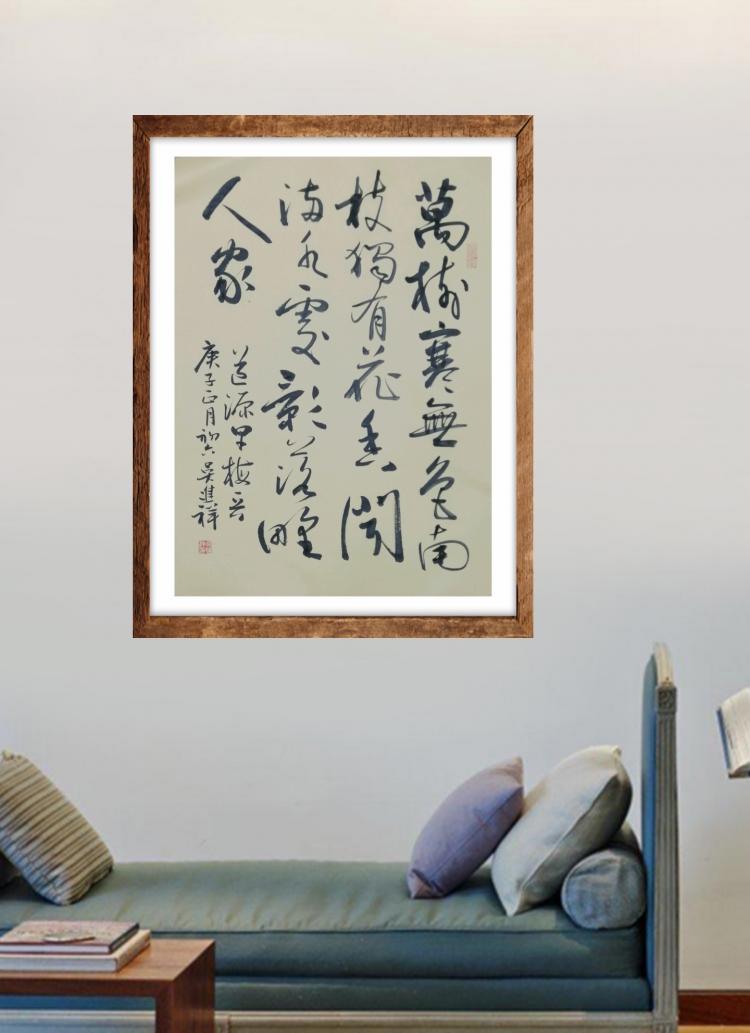 萬樹寒無色南
枝獨有花香聞
滿水處影落野
人家
道源早梅
庚子正月初六吴進祥